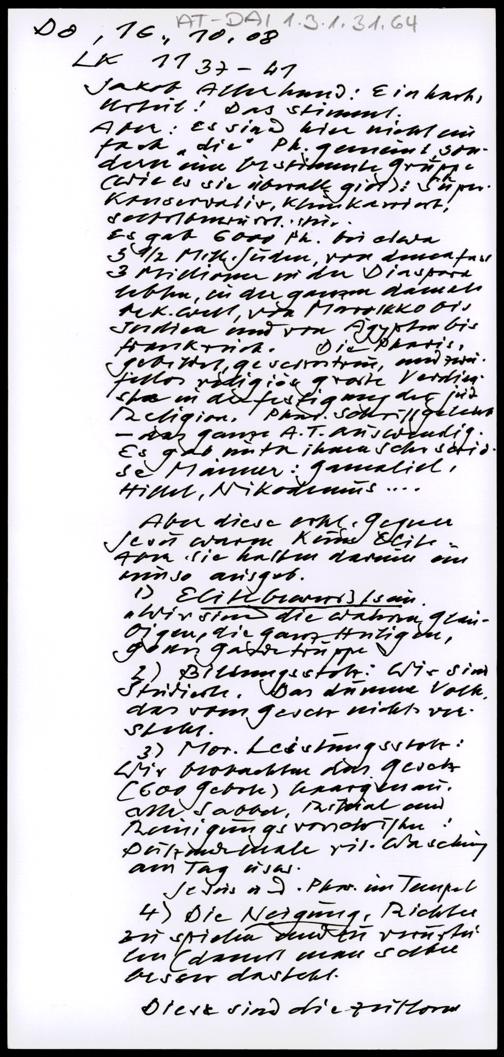 AT-DAI 1.3.1.31.64
DO, 16., 10.08
LK 11 37-41
Jakob Allerhand: Einhart,
Urteil! Das stimmt.
Aber: Es sind hier nicht ein
fach „die" Ph. gemeint, son-
dern eine bestimmte Gruppe
(wie es sie überall gibt): Super-
Konservativ, kleinkariert,
selbstbewusst, stur.
Es gab 6000 Ph. bei etwa
3 1/2 Mill. Juden, von denen fast
3 Millionen in der Diaspora
lebten, in der ganzen damals
bek. Welt, von Marokko bis
Indien und von Ägypten bis
Frankreich. Die Pharis.
gebildet, gesetzestreu, und zwei-
fellos religiös große Verdien
ste in der Festigung der jüd
Religion. Phar. Schriftgelehrt
- das ganze A.T. auswendig.
Es gab unter ihnen sehr seriö-
se Männer: Gamaliel,
Hillel, Nikodemus ....
Aber diese erkl. Gegner
Jesu waren keine Elite -
Aber sie haben darum um
umso ausgeb.
1) Elitebewusstsein.
„Wir sind die wahren Gläu-
bigen, die ganz Heiligen,
ganz gute Truppe
2) Bildungsstolz: Wir sind
Studierte. Das dumme Volk,
das vom Gesetz nichts ver-
steht.
3) Mor. Leistungsstolz:
Wir beobachten das Gesetz
(600 Gebote) haargenau.
alle Sabbat, Ritual und
Reinigungsvorschriften!
Dutzendmale rit. Waschung
am Tag usw.
Jesus u d. Phar. im Tempel
4) Die Neigung, Richter
zu spielen und zu verurtei
len (damit man selber
besser dasteht.
Diese sind die zeitlosen